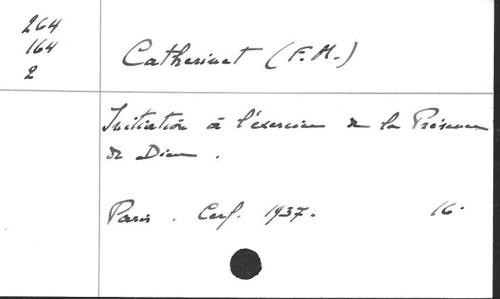 264
164
2
Catherinet (F. M.)
Initiation à l'exercice de la Présence
de Dieu.
Paris. Cerf. 1937. 16°